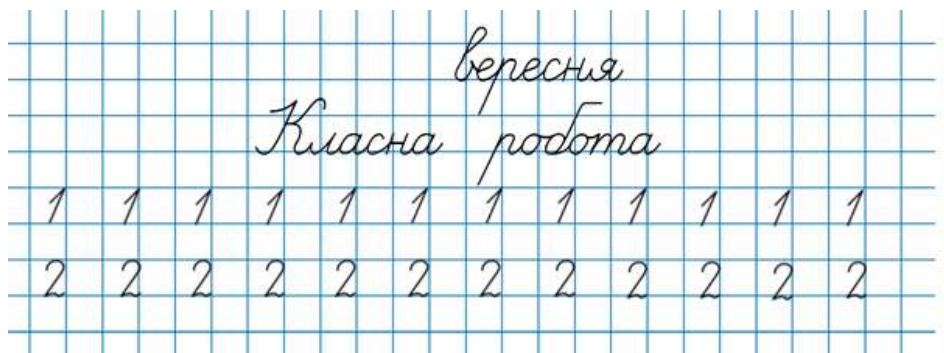 вересня
Класна робота
1 1 1 1 1 1 1 1 1 1 1 1
2 2 2 2 2 2 2 2 2 2 2 2